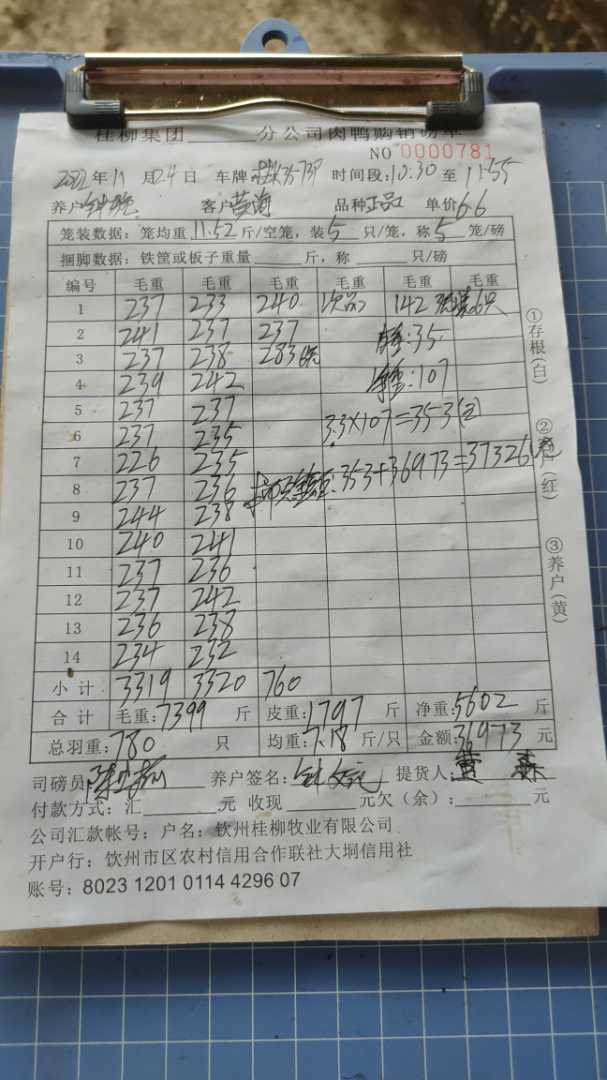 桂柳集团______分公司肉鸭购销磅单
NO 0000781
2022年11月24日 车牌 时间段:10:30至11:55
养户 客户黄海 品种正品 单价6.6
笼装数据：笼均重 11.52 斤/空笼，装 5 只/笼，称 5 笼/磅
捆脚数据：铁筐或板子重量______斤，称______只/磅
编号 毛重 毛重 毛重 毛重 毛重 毛重
1 237 233 240 次品 142
2 241 237 237 35
3 237 238 283 6笼
4 239 242 107
5 237 237
3.3×107=353(元)
6 237 235
7 226 235
8 237 236 353+36973=37326
9 244 238
10 240 241
11 237 236
12 237 242
13 236 238
14 234 232
小计 3319 3320 760
合计 毛重:7399 斤 皮重:1797 斤 净重:5602 斤
总羽重:780 只 均重:7.18 斤/只 金额:36973 元
司磅员 养户签名: 提货人:黄
付款方式：汇______元 收现______元欠（余）:______元
公司汇款帐号：户名：钦州桂柳牧业有限公司
开户行：饮州市区农村信用合作联社大垌信用社
账号：8023 1201 0114 4296 07
①存根(白)
②客户(红)
③养户(黄)